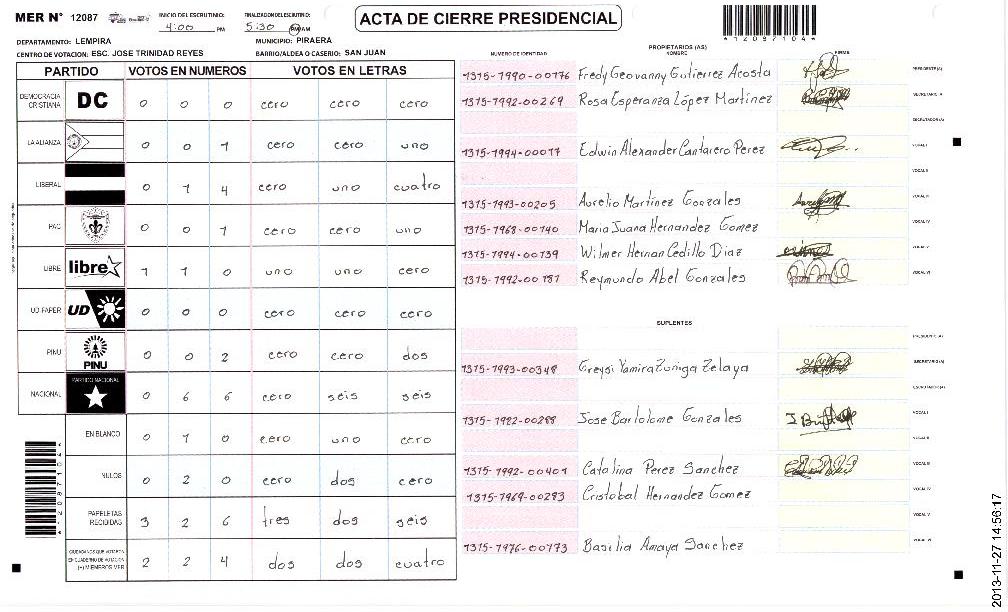 MER N° 12087
INICIO DEL ESCRUTINIO:
4:00 PM
FINALIZACION DEL ESCRUTINIO:
5:30 PM AM
ACTA DE CIERRE PRESIDENCIAL
*12087104*
DEPARTAMENTO: LEMPIRA
MUNICIPIO: PIRAERA
CENTRO DE VOTACION: ESC. JOSE TRINIDAD REYES
BARRIO/ALDEA O CASERIO: SAN JUAN
PARTIDO VOTOS EN NUMEROS VOTOS EN LETRAS
DEMOCRACIA CRISTIANA DC 0 0 0 cero cero cero
LA ALIANZA 0 0 1 cero cero uno
LIBERAL 0 1 4 cero uno cuatro
PAC 0 0 1 cero cero uno
LIBRE libre 1 1 0 uno uno cero
UD FAPER UD 0 0 0 cero cero cero
PINU PINU 0 0 2 cero cero dos
NACIONAL PARTIDO NACIONAL 0 6 6 cero seis seis
EN BLANCO 0 1 0 cero uno cero
NULOS 0 2 0 cero dos cero
PAPELETAS RECIBIDAS 3 2 6 tres dos seis
CIUDADANOS QUE VOTARON EN CUADERNO DE VOTACION (+) MIEMBROS MER 2 2 4 dos dos cuatro
PROPIETARIOS (AS)
NUMERO DE IDENTIDAD NOMBRE FIRMA
1315-1990-00176 Fredy Geovanny Gutierrez Acosta PRESIDENTE(A)
1315-1992-00269 Rosa Esperanza López Martinez SECRETARIO(A)
ESCRUTADOR(A)
1315-1994-00017 Edwin Alexander Cantarero Perez VOCAL I
VOCAL II
1315-1993-00205 Aurelio Martinez Gonzales VOCAL III
1315-1968-00140 Maria Juana Hernandez Gomez VOCAL IV
1315-1994-00139 Wilmer Hernan Cedillo Diaz VOCAL V
1315-1992-00187 Reymundo Abel Gonzales VOCAL VI
SUPLENTES
PRESIDENTE(A)
1315-1993-00348 Greysi Yamira Zuniga Zelaya SECRETARIO(A)
ESCRUTADOR(A)
1315-1982-00288 Jose Bartolome Gonzales VOCAL I
VOCAL II
1315-1992-00401 Catalina Perez Sanchez VOCAL III
1315-1969-00283 Cristobal Hernandez Gomez VOCAL IV
VOCAL V
1315-1976-00173 Basilia Amaya Sanchez VOCAL VI
2013-11-27 14:56:17